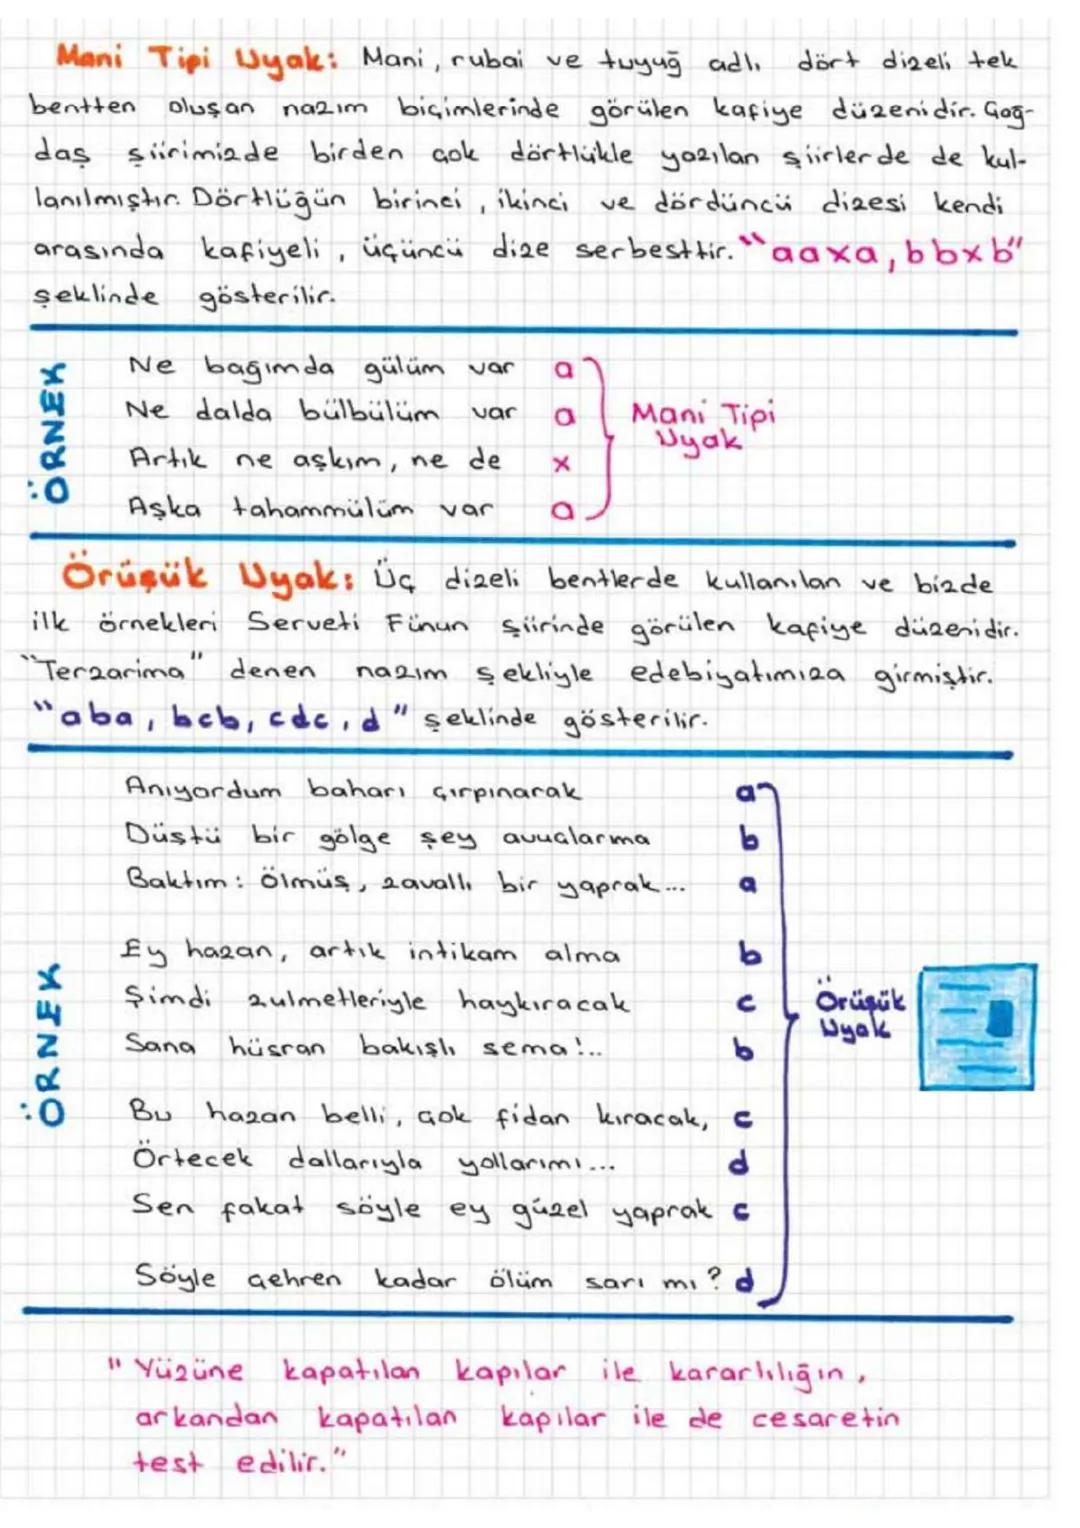 Mani Tipi Uyak: Mani, rubai ve tuyuğ adlı dört dizeli tek
bentten oluşan nazım biçimlerinde görülen kafiye düzenidir. Çağ-
daş şiirimizde birden çok dörtlükle yazılan şiirlerde de kul-
lanılmıştır. Dörtlüğün birinci, ikinci ve dördüncü dizesi kendi
arasında kafiyeli, üçüncü dize serbesttir. "aaxa, bbxb"
şeklinde gösterilir.
ÖRNEK
Ne bağımda gülüm var a
Ne dalda bülbülüm var a
Artık ne aşkım, ne de x
Aşka tahammülüm var a
Mani Tipi
Uyak
Örüşük Uyak: Üç dizeli bentlerde kullanılan ve bizde
ilk örnekleri Serveti Fünun şiirinde görülen kafiye düzenidir.
"Terzarima" denen nazım şekliyle edebiyatımıza girmiştir.
"aba, bcb, cdc, d" şeklinde gösterilir.
ÖRNEK
Anıyordum baharı çırpınarak a
Düştü bir gölge şey avuçlarma b
Baktım: Ölmüş, zavallı bir yaprak... a
Ey hazan, artık intikam alma b
Şimdi zulmetleriyle haykıracak c
Sana hüsran bakışlı sema!.. b
Bu hazan belli, çok fidan kıracak, c
Örtecek dallarıyla yollarımı... d
Sen fakat söyle ey güzel yaprak c
Söyle çehren kadar ölüm sarı mı? d
Örüşük
Uyak
"Yüzüne kapatılan kapılar ile kararlılığın,
arkandan kapatılan kapılar ile de cesaretin
test edilir."